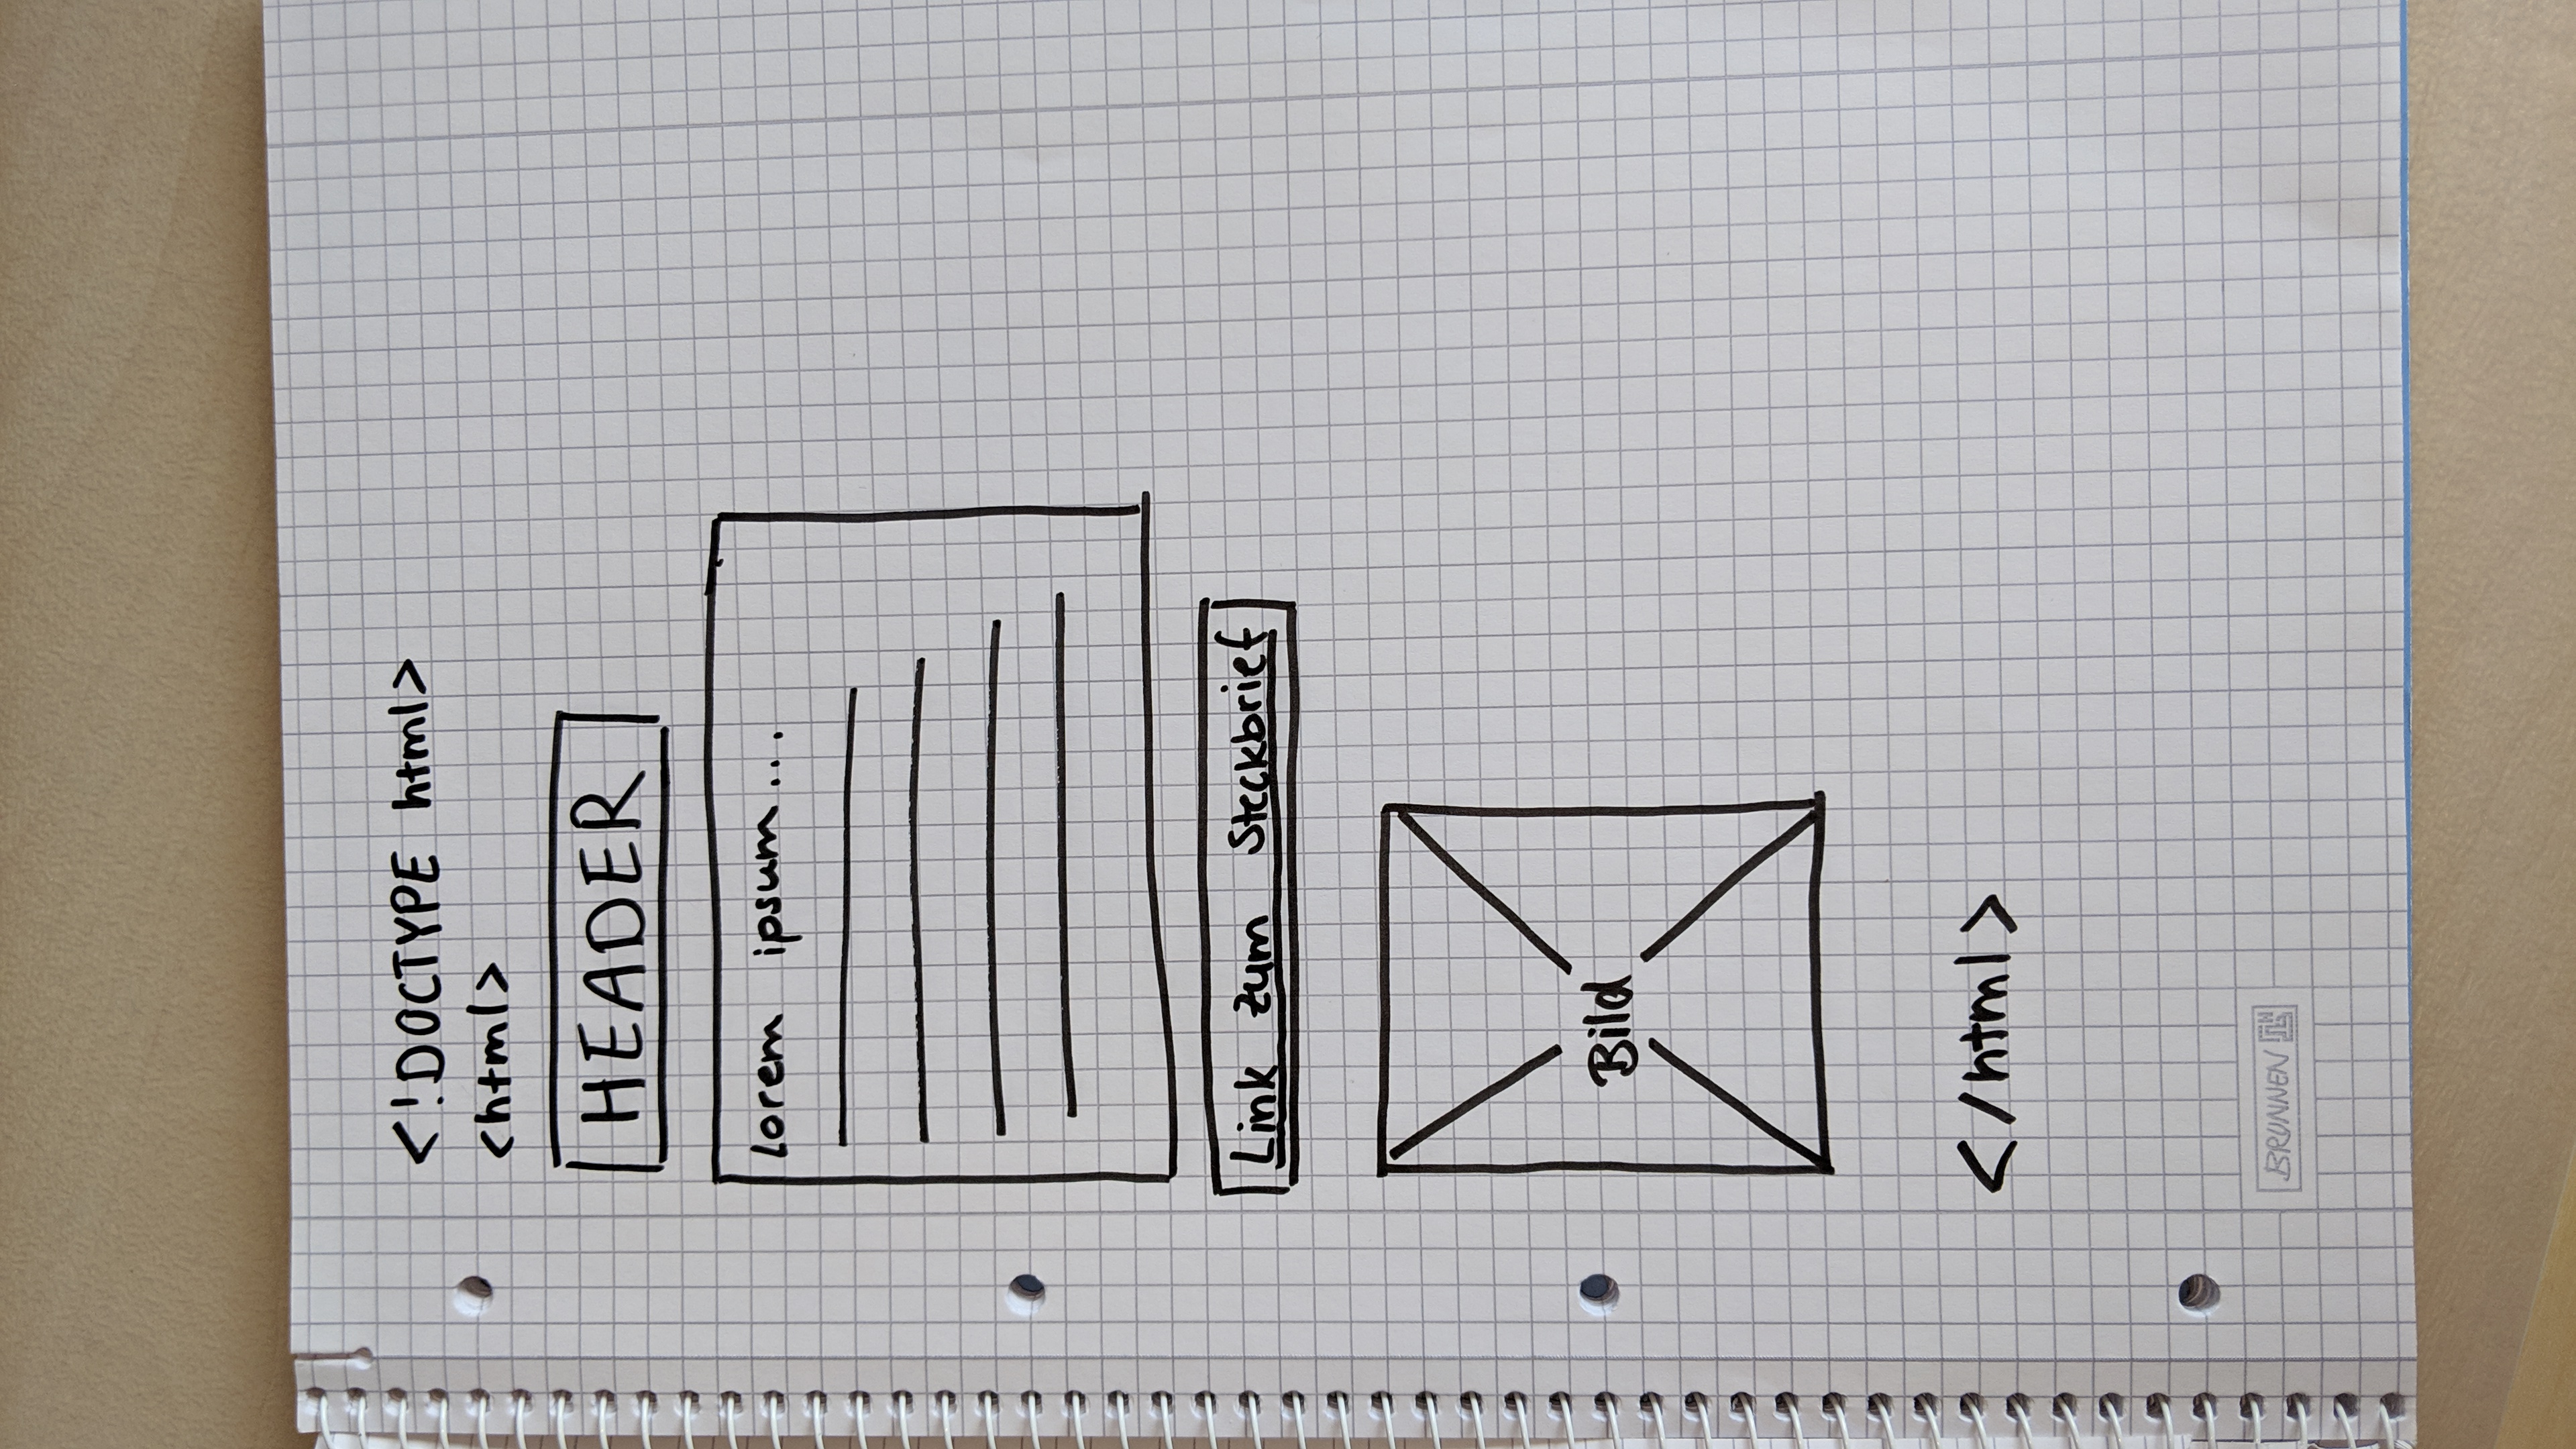 <!DOCTYPE html>
<html>
HEADER
Lorem ipsum...
Link zum Steckbrief
Bild
</html>
BRUNNEN